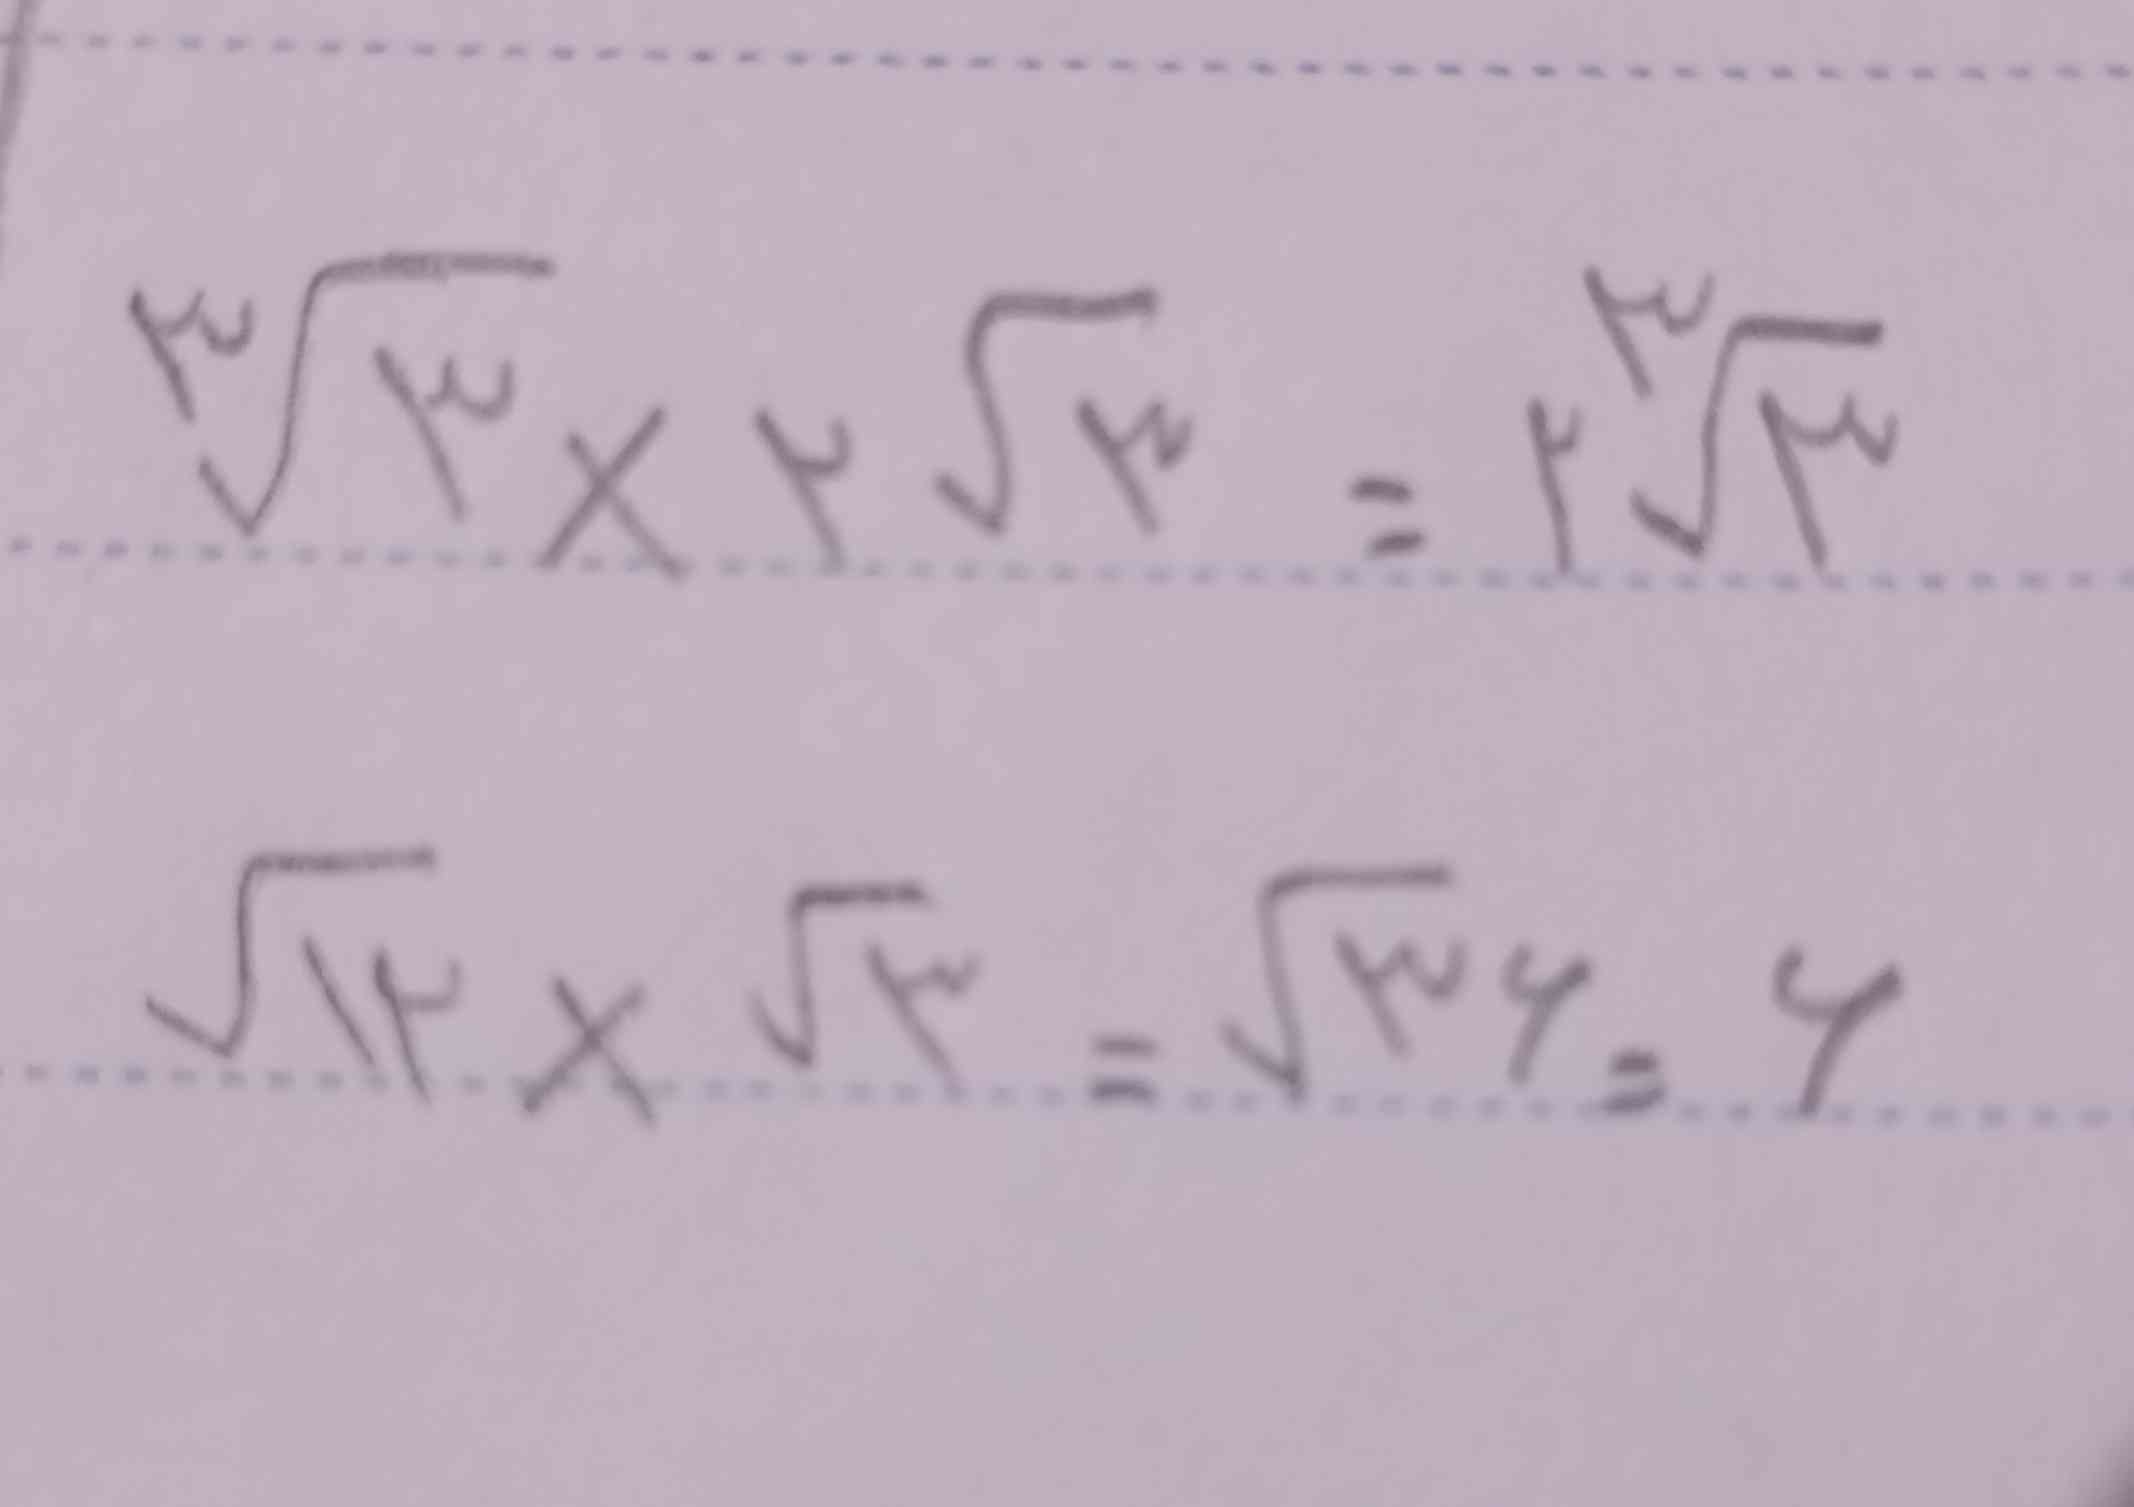 ۳√۳ × ۲√۳ = ۲ ۳√۳
√۱۲ × √۳ = √۳۶ = ۶